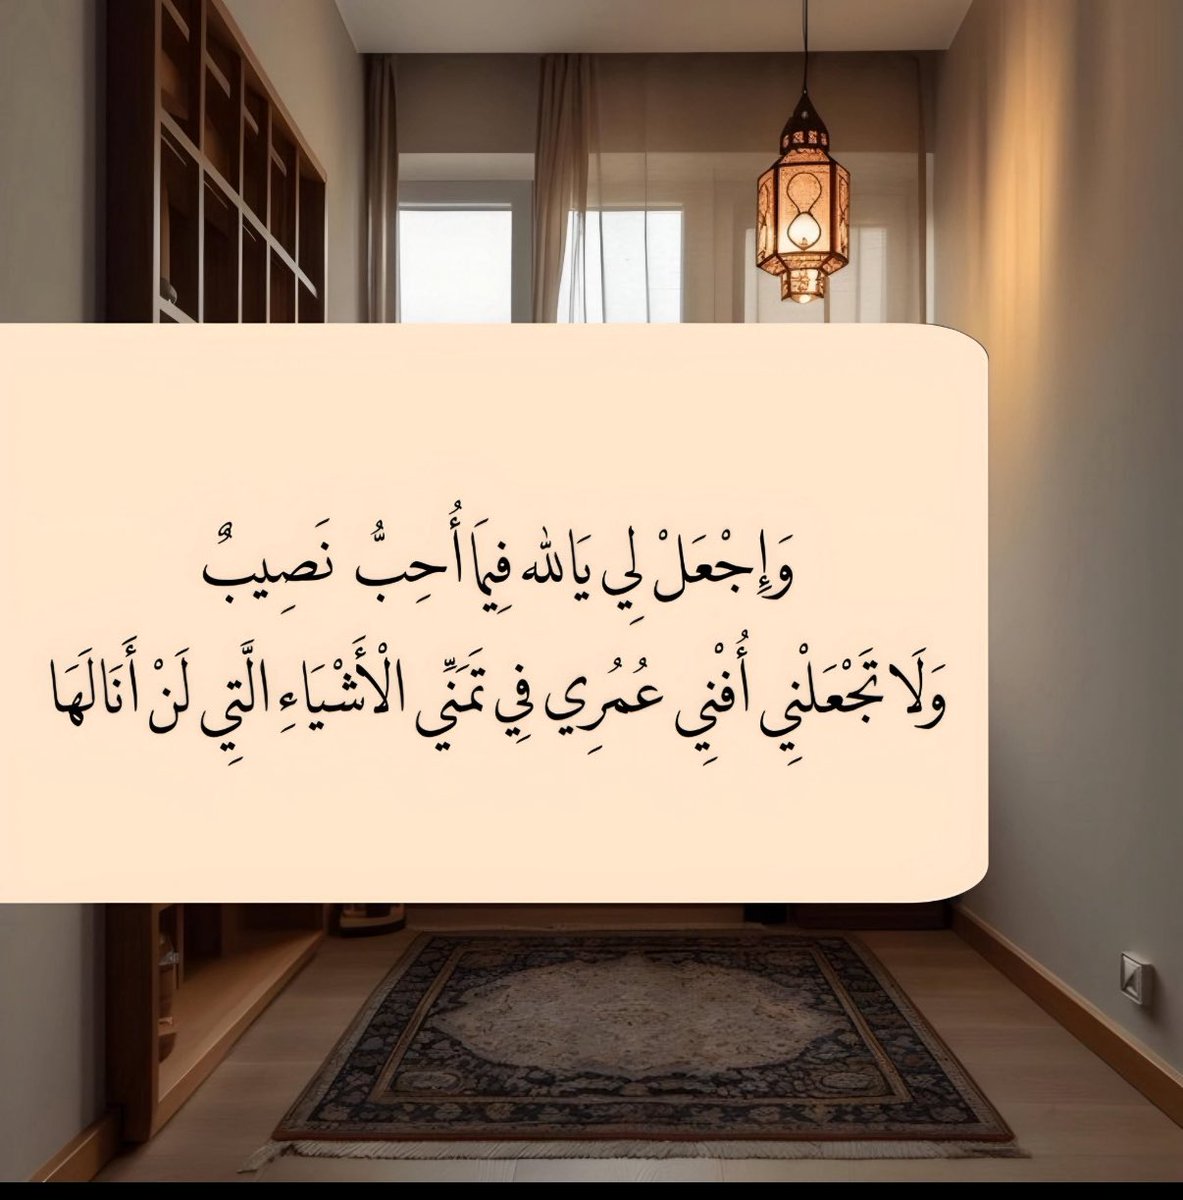 وَإِجْعَلْ لِي يَالله فِيمَا أُحِبُّ نَصِيبٌ
وَلَا تَجْعَلْنِي أُفْنِي عُمُرِي فِي تَمَنِّي الْأَشْيَاءِ الَّتِي لَنْ أَنَالَهَا